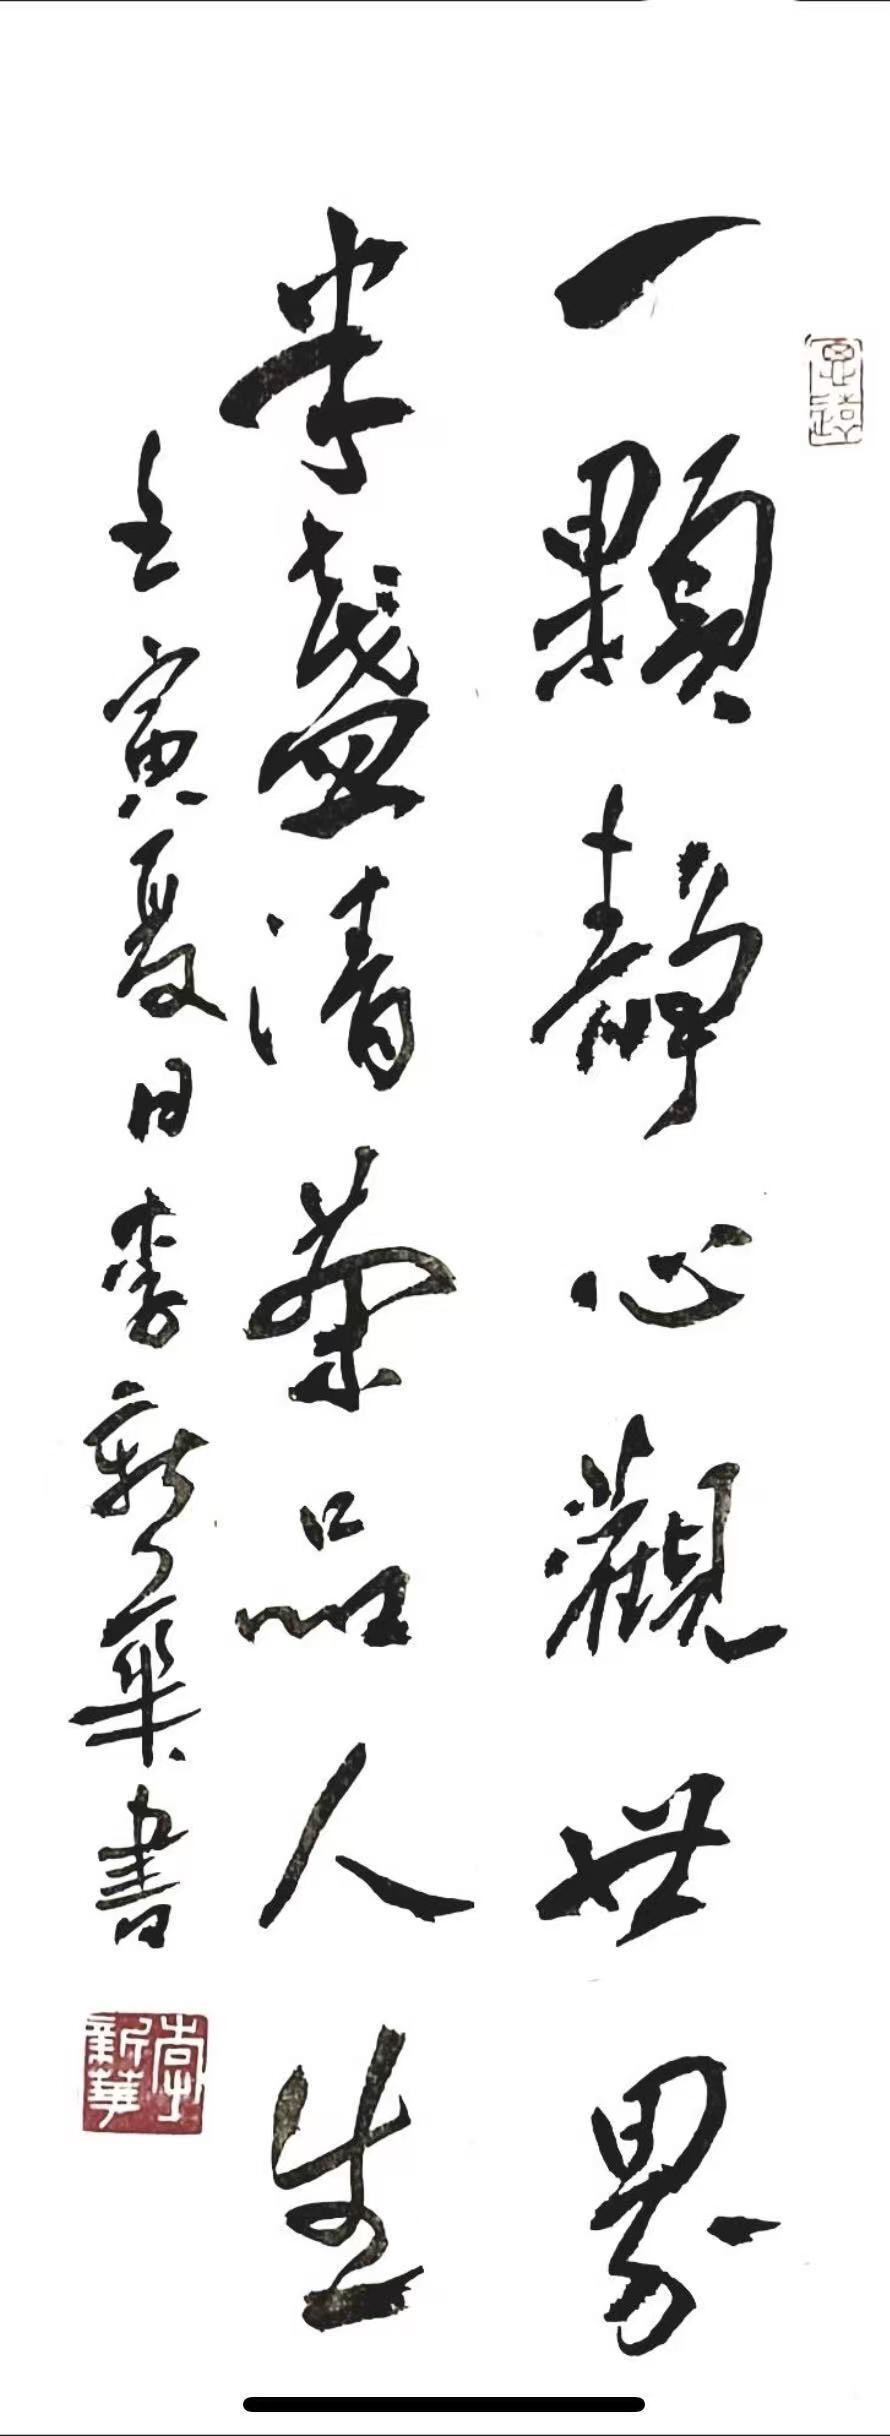 一顆靜心觀世界
半盞清茶品人生
壬寅夏日李新華書
思遠
李新華